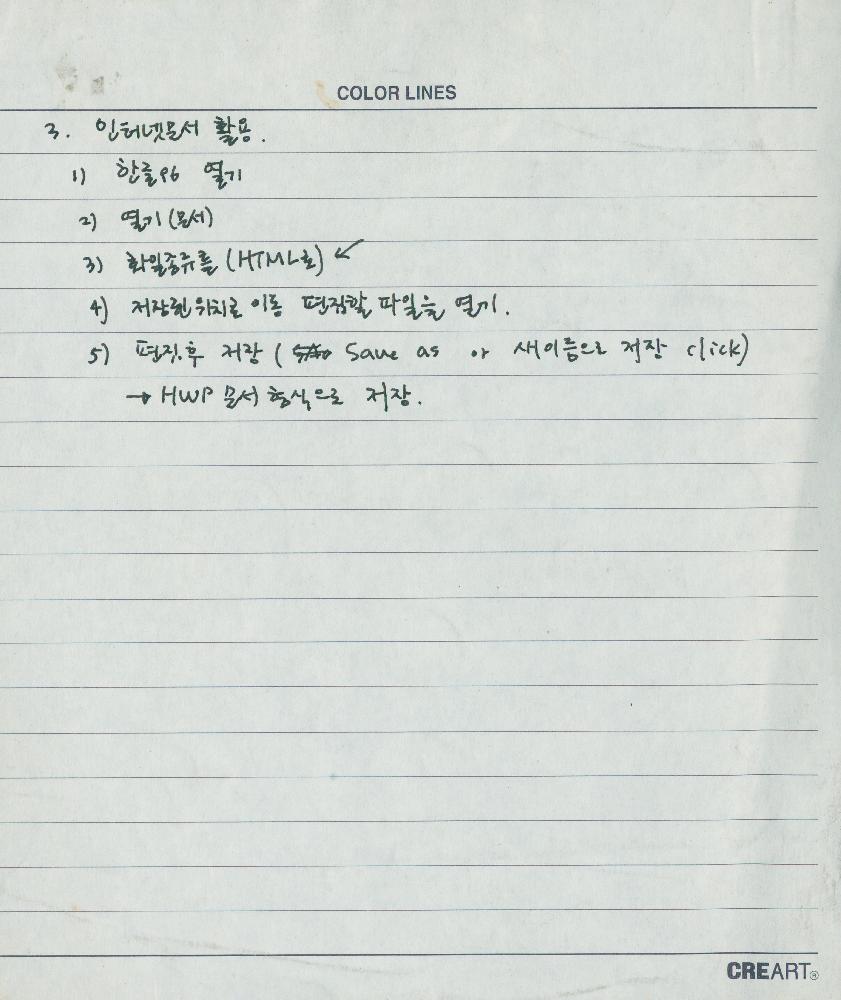 COLOR LINES
3. 인터넷문서 활용.
1) 한글96 열기
2) 열기(문서)
3) 화일종류를 (HTML로) ↙
4) 저장된 위치로 이동 편집할 파일을 열기.
5) 편집.후 저장 ( Save as or 새이름으로 저장 click)
→ HWP 문서 형식으로 저장.
CREART®